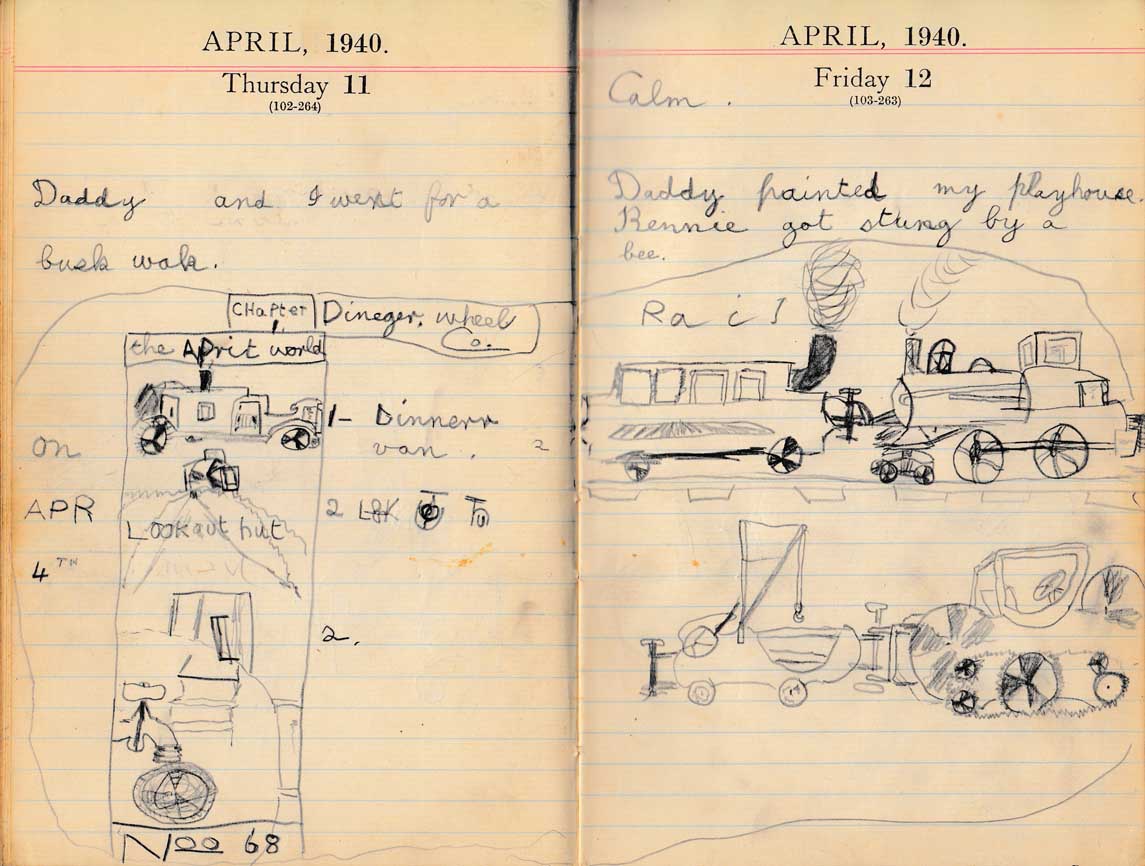 APRIL, 1940.
Thursday 11
(102-264)
Daddy and I went for a
bush wak.
CHapter
Dineger, wheel
Co.
the Aprit world
1- Dinnerr
van.
2
on
APR
4TH
Lookout hut
2
2.
Noo 68
APRIL, 1940.
Friday 12
(103-263)
Calm.
Daddy painted my playhouse.
Rennie got stung by a
bee.
Rail